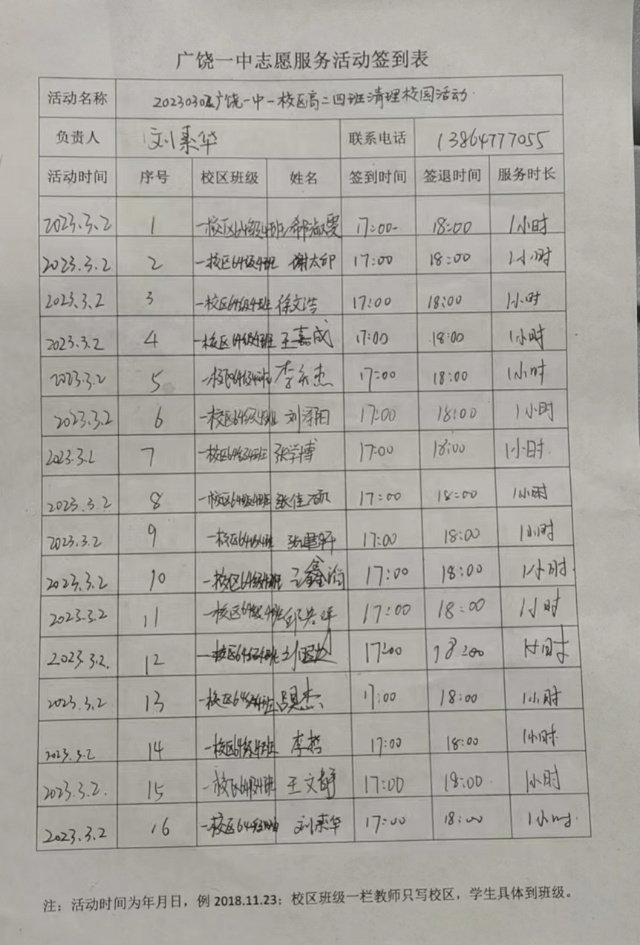 广饶一中志愿服务活动签到表
活动名称 20230302广饶一中一校区高二四班清理校园活动
负责人 刘素华 联系电话 13864777055
活动时间 序号 校区班级 姓名 签到时间 签退时间 服务时长
2023.3.2 1 一校区64级4班 17:00 18:00 1小时
2023.3.2 2 一校区64级4班 谢太印 17:00 18:00 1小时
2023.3.2 3 一校区64级4班 徐文浩 17:00 18:00 1小时
2023.3.2 4 一校区64级4班 王嘉成 17:00 18:00 1小时
2023.3.2 5 一校区64级4班 李东杰 17:00 18:00 1小时
2023.3.2 6 一校区64级4班 17:00 18:00 1小时
2023.3.2 7 一校区64级4班 张学博 17:00 18:00 1小时
2023.3.2 8 一校区64级4班 17:00 18:00 1小时
2023.3.2 9 一校区64级4班 17:00 18:00 1小时
2023.3.2 10 一校区64级4班 17:00 18:00 1小时
2023.3.2 11 一校区64级4班 17:00 18:00 1小时
2023.3.2. 12 一校区64级4班 17:00 18:00 1小时
2023.3.2 13 一校区64级4班 17:00 18:00 1小时
2023.3.2 14 一校区64级4班 李哲 17:00 18:00 1小时
2023.3.2. 15 一校区64级4班 王文静 17:00 18:00 1小时
2023.3.2 16 一校区64级4班 刘素华 17:00 18:00 1小时
注：活动时间为年月日，例 2018.11.23；校区班级一栏教师只写校区，学生具体到班级。